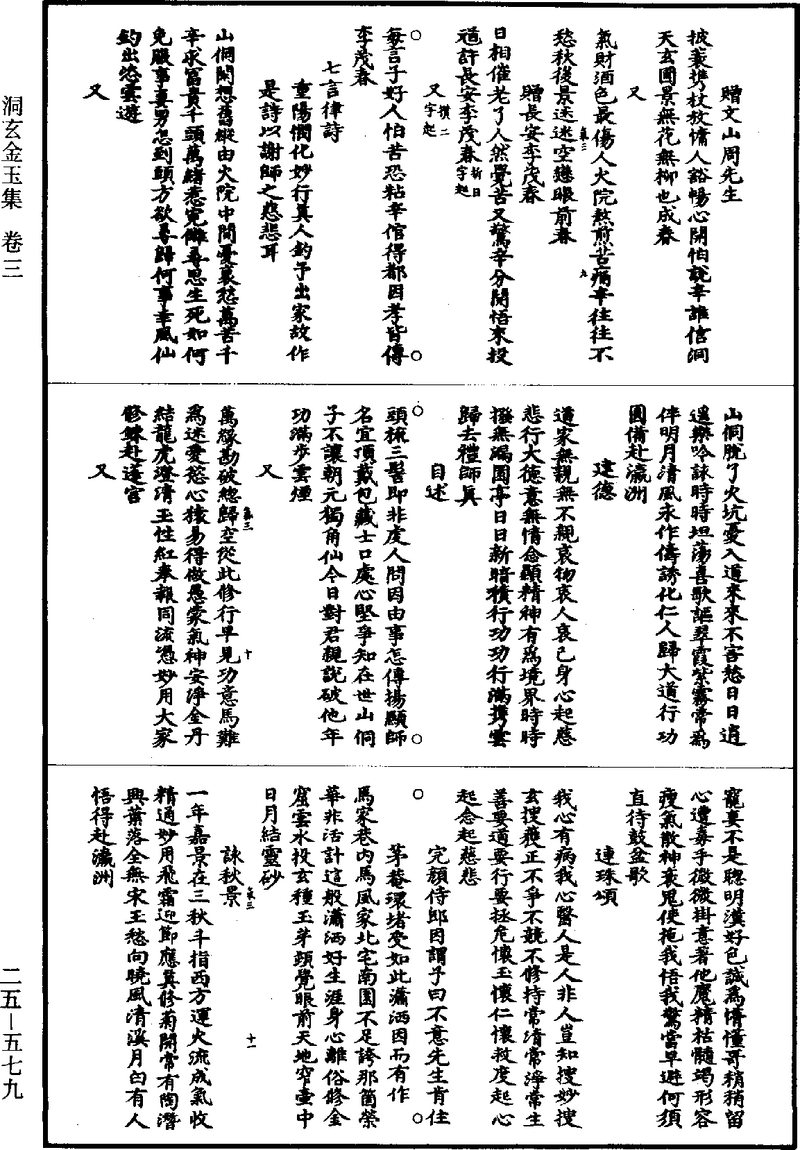 洞玄金玉集 卷三
二五—五七九
贈文山周先生
披蓑携杖放慵人谿暢心開怕說辛誰信洞
天玄圃景無花無柳也成春
又
氣財酒色最傷人火院熬煎苦痛辛往往不
愁秋後景迷迷空戀眼前春
贈長安李茂春
日相催老了人然覺苦又驚辛分開悟來投
道許長安李茂春 折日字起
又 攢二字起
每言子好人怕苦恐粘辛倌得都因孝皆傳
李茂春
七言律詩
重陽憫化妙行真人鈞予出家故作
是詩以謝師之慈悲耳
山侗閑想舊縱由火院中間憂哀愁萬苦千
辛求富貴千頭萬緒惹寃讎尋思生死如何
免服事妻男怎到頭方欲尋歸何事幸風仙
釣出恣雲遊
又
山侗脫了火坑憂入道來來不害愁日日逍
遙無吟詠時時坦蕩喜歌謳翠霞紫霧常為
伴明月清風永作儔誘化仁人歸大道行功
圓備赴瀛洲
建德
道家無親無不親哀物哀人哀己身心起慈
悲行大德意無情念顯精神有為境界時時
撥無漏園亭日日新暗積行功功行滿攜雲
歸去禮師真
自述
頭梳三髻即非虔人問因由事怎傳揚顯師
名宜頂戴包藏士口處心堅爭知在世山侗
子不讓朝元獨角仙今日對君親說破他年
功滿步雲煙
又
萬緣勘破總歸空從此修行早見功意馬難
為迷愛慾心猿易得做愚蒙氣神安淨金丹
結龍虎澄清玉性紅奉報同流憑妙用大家
修鍊赴蓬宮
又
寵真不是聰明漢好色誠為懵懂哥稍稍留
心遭毒手微微掛意著他魔精枯髓竭形容
瘦氣散神衰鬼使拖我悟我驚當早避何須
直待鼓盆歌
連珠頌
我心有病我心醫人是人非人豈知搜妙搜
玄搜獲正不爭不競不修持常清常淨常生
善要道要行要拯危懷玉懷仁懷救度起心
起念起慈悲
完顏侍郎因謂予曰不意先生肯住
茅菴環堵受如此瀟洒因而有作
馬家巷内馬風家北宅南園不足誇那箇榮
華非活計這般瀟洒好生涯身心離俗修金
窟雲水投玄種玉芽頭覺眼前天地窄壷中
日月結靈砂
詠秋景
一年嘉景在三秋斗指西方運火流成氣收
精通妙用飛霜迎節應真修菊開常有陶潛
興葉落全無宋玉愁向曉風清溪月白有人
悟得赴瀛洲